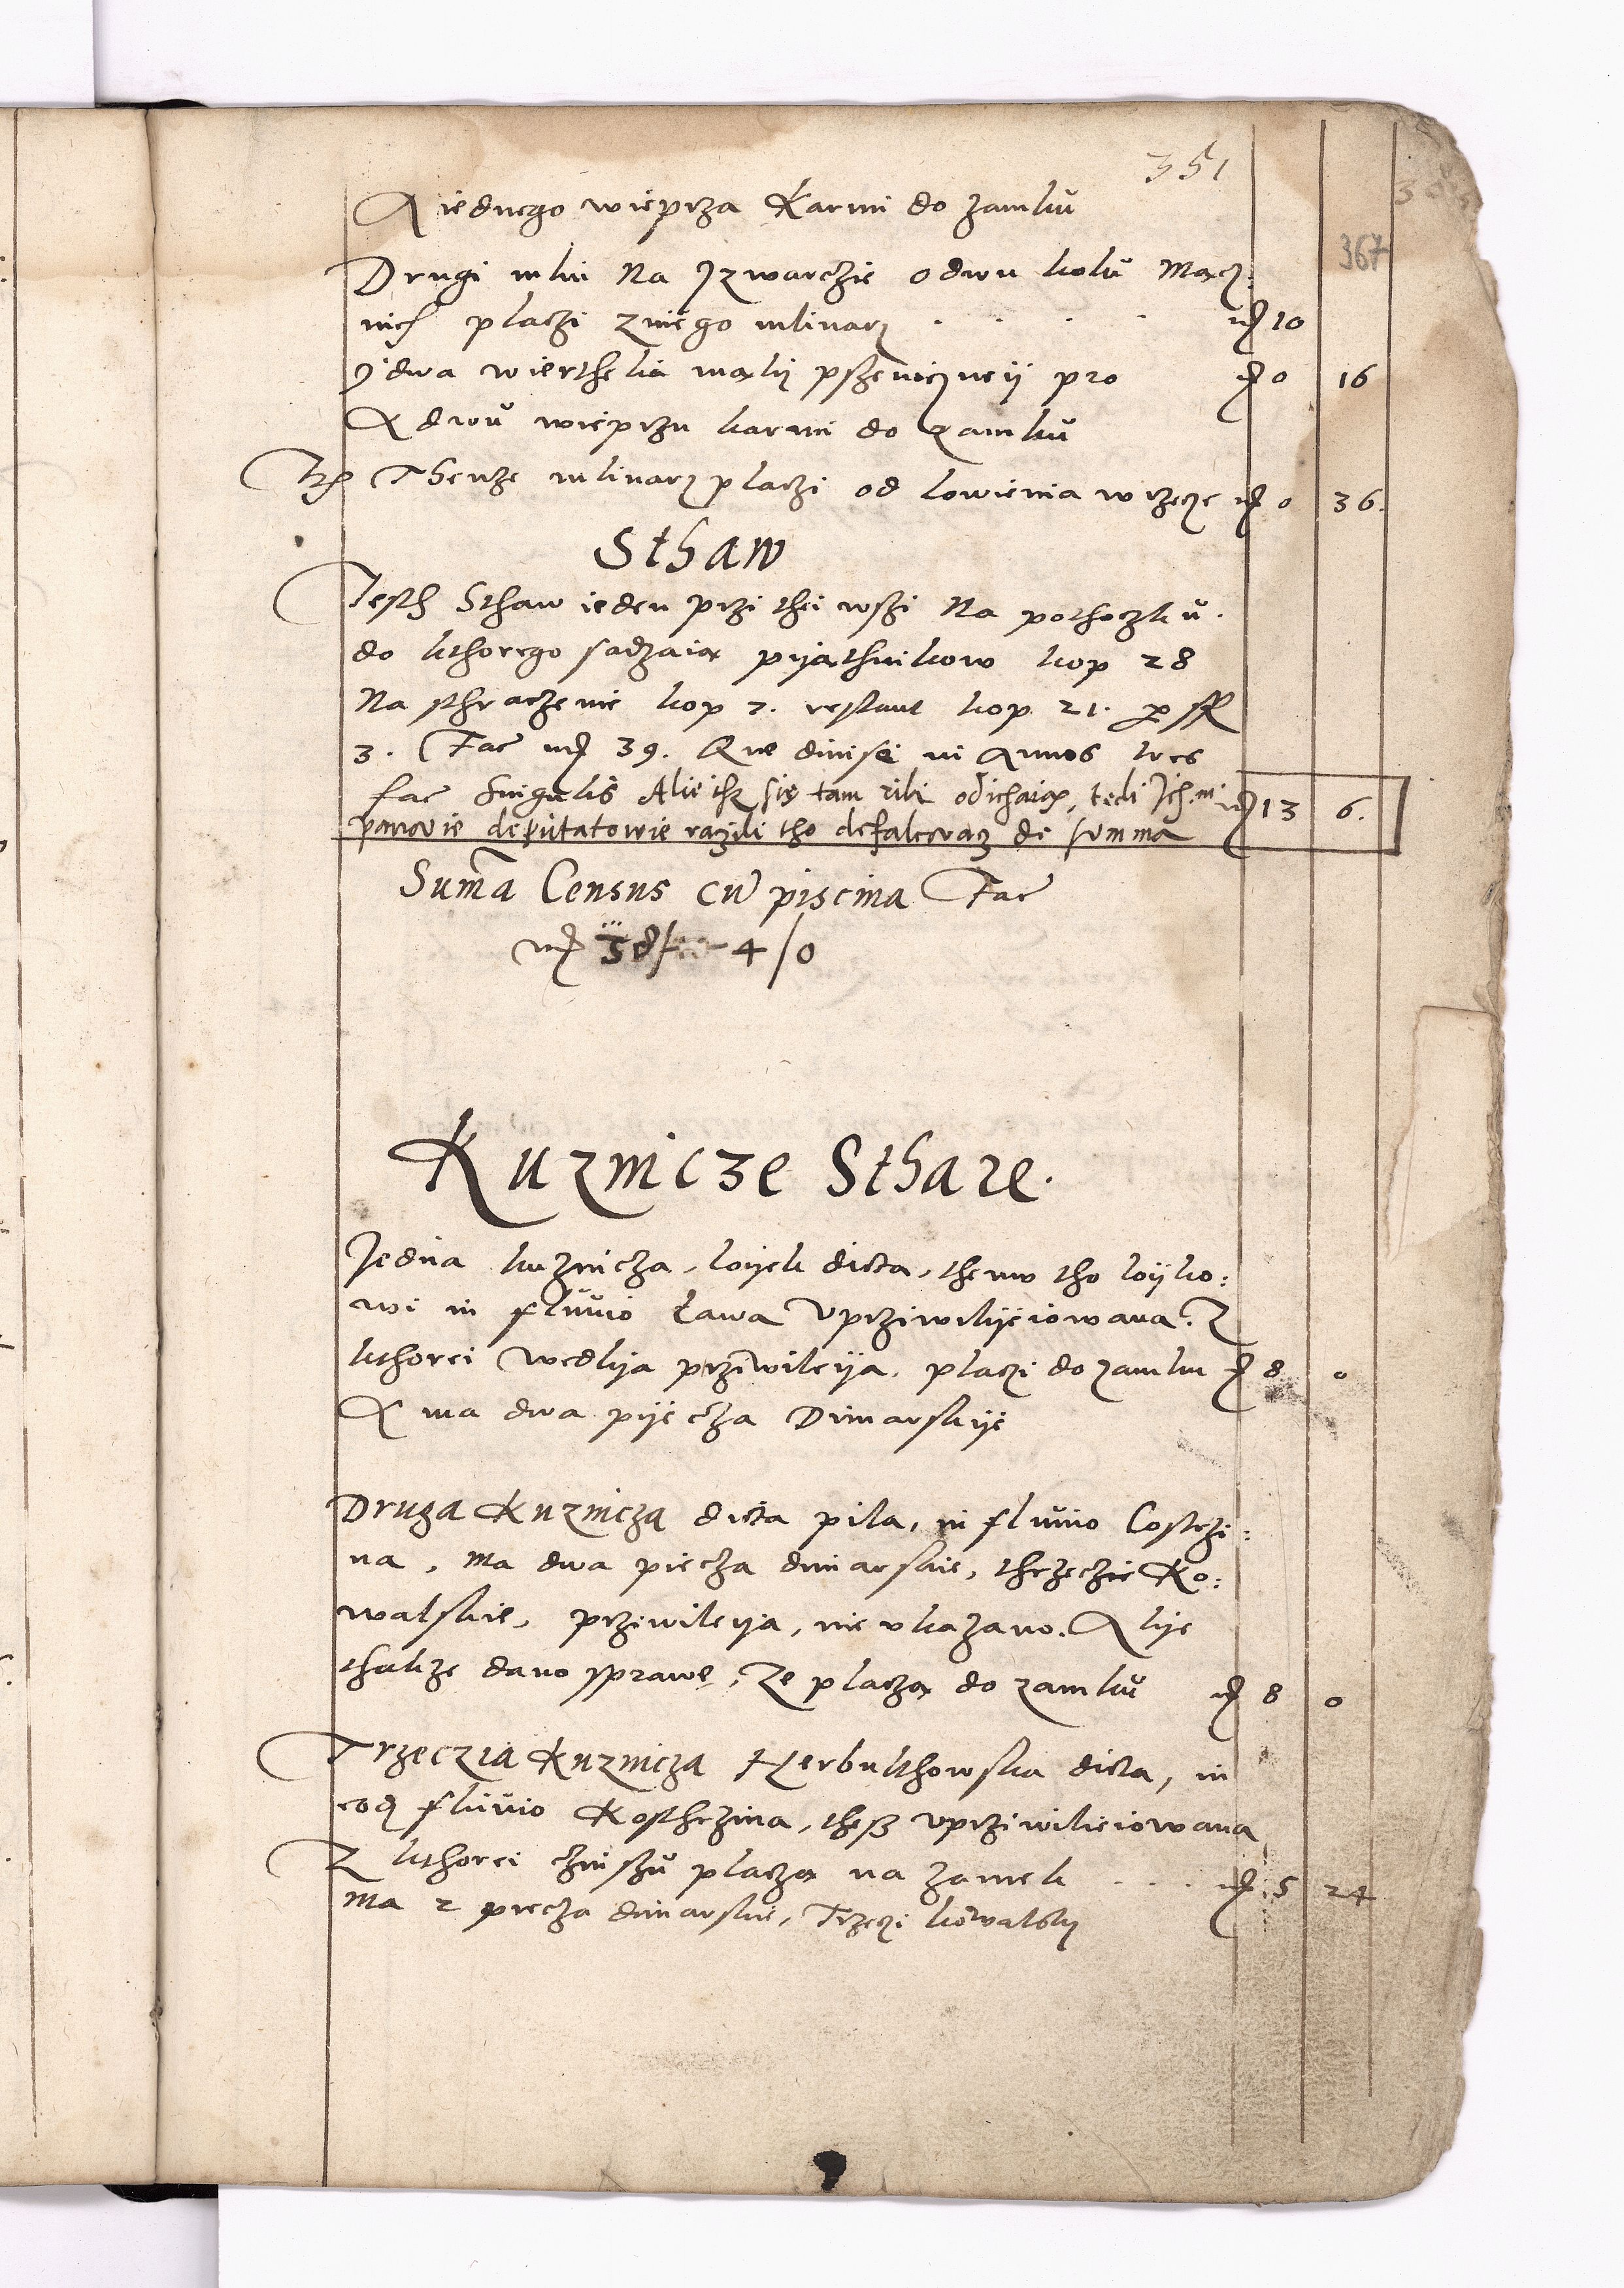 351
367
A iednego wieprza Karmi do zamku
Drugi mlin Na Izwarczie odwu kolu Mącz:
nich placzi zniego mlinarz . . . . 10
I dwa wierthelia mąky pszeniczneÿ pro 0 16
A dwu wieprzu karmi do zamku
Thenze mlinarz placzi od lowienia wrzecze 0 36.
Sthaw
Jesth Sthaw ieden przi thei wszi Na pothoczku.
do kthorego sadzaią pijąthnikow kop 28
Na sthraczenie kop 7. restant kop 21. per
3. Fac 39. Que divise in Annos tres
fac Singulis Alie isz się tam ribi odichaią, tedi Ich m. 13 6.
panowie deputatowie raczili tho defalcowacz de summa
Suma Census cu piscina Fac
4/0
Kuznicze Sthare.
Jedna kuznicza, loijek dicta, themu tho loijko:
wi in fluvio Ława Vprziwilijeiowana. Z
kthorei wedlija prziwileija. placzi do zamku 8 0
A ma dwa pijecza Dimarskije
Druga Kuznicza dicta pila, in fluvio Costrzi:
na, ma dwa piecza dimarskie, thrzeczie Ko:
walskie, prziwileija, nie vkazano. Alije
thakze dano sprawe, Ze placzą do zamku 8 0
Trzeczia Kuznicza Herbulthowska dicta, in
eod fluvio Kosthrzina, thesz vprziwilieiowana
Z kthorei czinszu placzą na zamek . . . 5 24
ma 2 piecza dimarskie, Trzeczi kowalsky